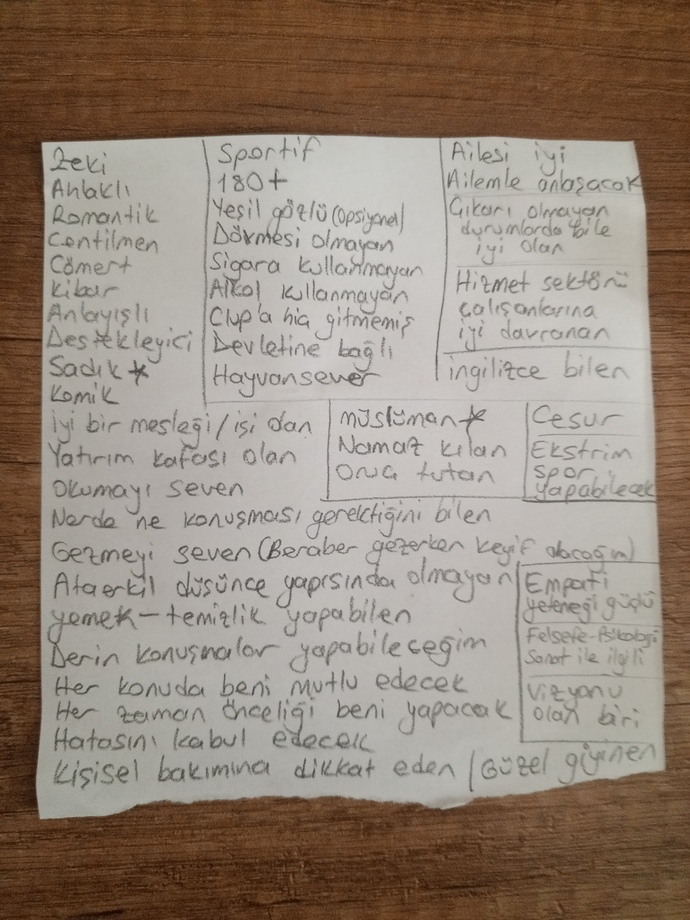 Zeki
Ahlaklı
Romantik
Centilmen
Cömert
Kibar
Anlayışlı
Destekleyici
Sadık *
Komik
Sportif
180+
Yeşil gözlü (opsiyonel)
Dövmesi olmayan
Sigara kullanmayan
Alkol kullanmayan
Clup'a hiç gitmemiş
Devletine bağlı
Hayvansever
Ailesi iyi
Ailemle anlaşacak
Çıkarı olmayan
durumlarda bile
iyi olan
Hizmet sektörü
çalışanlarına
iyi davranan
ingilizce bilen
iyi bir mesleği/işi olan
Yatırım kafası olan
Okumayı seven
müslüman *
Namaz kılan
Oruç tutan
Cesur
Ekstrim
spor
yapabilecek
Nerde ne konuşması gerektiğini bilen
Gezmeyi seven (Beraber gezerken keyif alacağım)
Ataerkil düşünce yapısında olmayan
yemek-temizlik yapabilen
Derin konuşmalar yapabileceğim
Her konuda beni mutlu edecek
Her zaman önceliği beni yapacak
Hatasını kabul edecek
Kişisel bakımına dikkat eden / Güzel giyinen
Empati
yeteneği güçlü
Felsefe-Psikoloji
Sanat ile ilgili
Vizyonu
olan biri